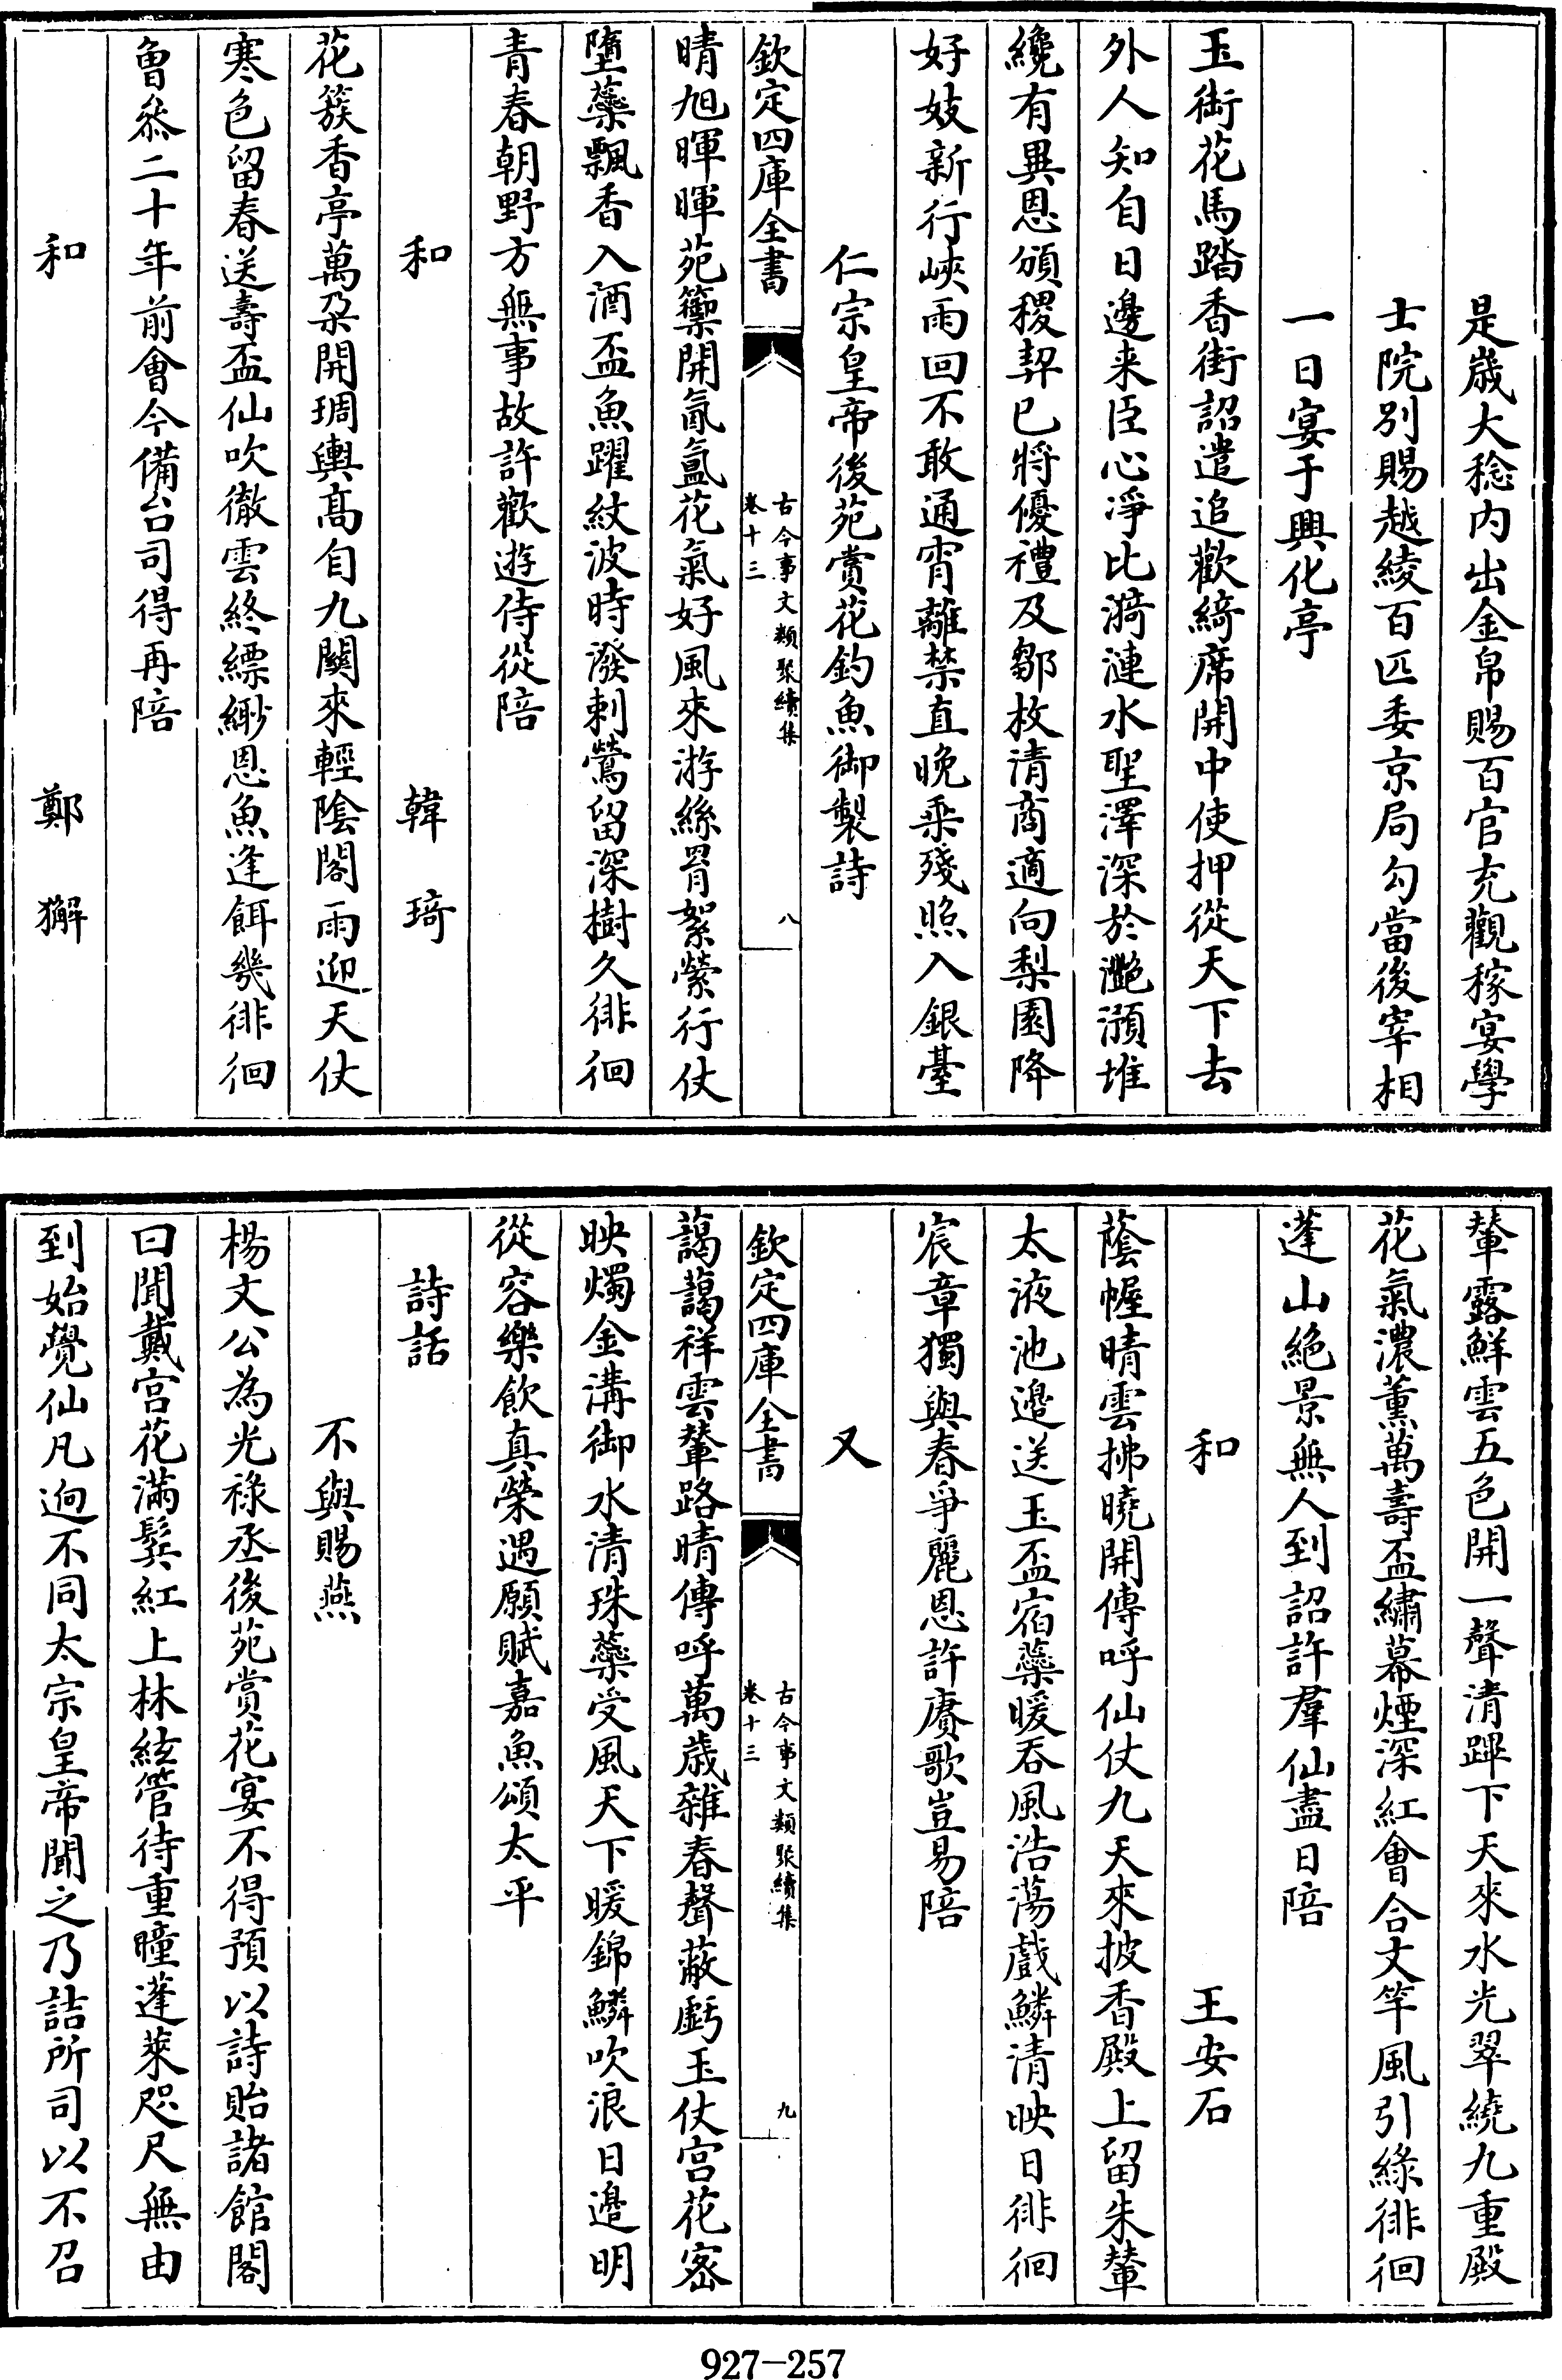 是歲大稔内出金帛賜百官充觀稼宴學
士院别賜越綾百匹委京局勾當後宰相
一日宴于興化亭
玉銜花馬踏香街詔遣追歡綺席開中使押從天下去
外人知自日邊来臣心凈比漪漣水聖澤深於灔澦堆
纔有異恩頒稷契已將優禮及鄒枚清商適向梨園降
好妓新行峽雨回不敢通宵離禁直晚乘殘照入銀臺
仁宗皇帝後苑賞花釣魚御製詩
欽定四庫全書
古今事文類聚續集
卷十三
八
晴旭暉暉苑籞開氤氲花氣好風來游絲罥絮縈行仗
墮蘂飄香入酒盃魚躍紋波時潑剌鶯留深樹久徘徊
青春朝野方無事故許歡遊侍從陪
和 韓琦
花簇香亭萬朶開琱輿髙自九關來輕陰閣雨迎天仗
寒色留春送壽盃仙吹徹雲終縹緲恩魚逢餌幾徘徊
曾叅二十年前會今備台司得再陪
和 鄭獬
輦露鮮雲五色開一聲清蹕下天來水光翠繞九重殿
花氣濃薰萬壽盃繡幕煙深紅會合文竿風引緑徘徊
蓬山絶景無人到詔許羣仙盡日陪
和 王安石
蔭幄晴雲拂曉開傳呼仙仗九天來披香殿上留朱輦
太液池邉送玉盃宿蘂暖吞風浩蕩戲鱗清映日徘徊
宸章獨與春爭麗恩許賡歌豈易陪
又
欽定四庫全書
古今事文類聚續集
卷十三
九
藹藹祥雲輦路晴傳呼萬歳雜春聲蔽虧玉仗宫花宻
映燭金溝御水清珠蘂受風天下暖錦鱗吹浪日邉明
從容樂飲真榮遇願賦嘉魚頌太平
詩話
不與賜燕
楊文公為光祿丞後苑賞花宴不得預以詩貽諸館閣
曰聞戴宫花滿鬂紅上林絃管侍重瞳蓬萊咫尺無由
到始覺仙凡逈不同太宗皇帝聞之乃詰所司以不召
927-257